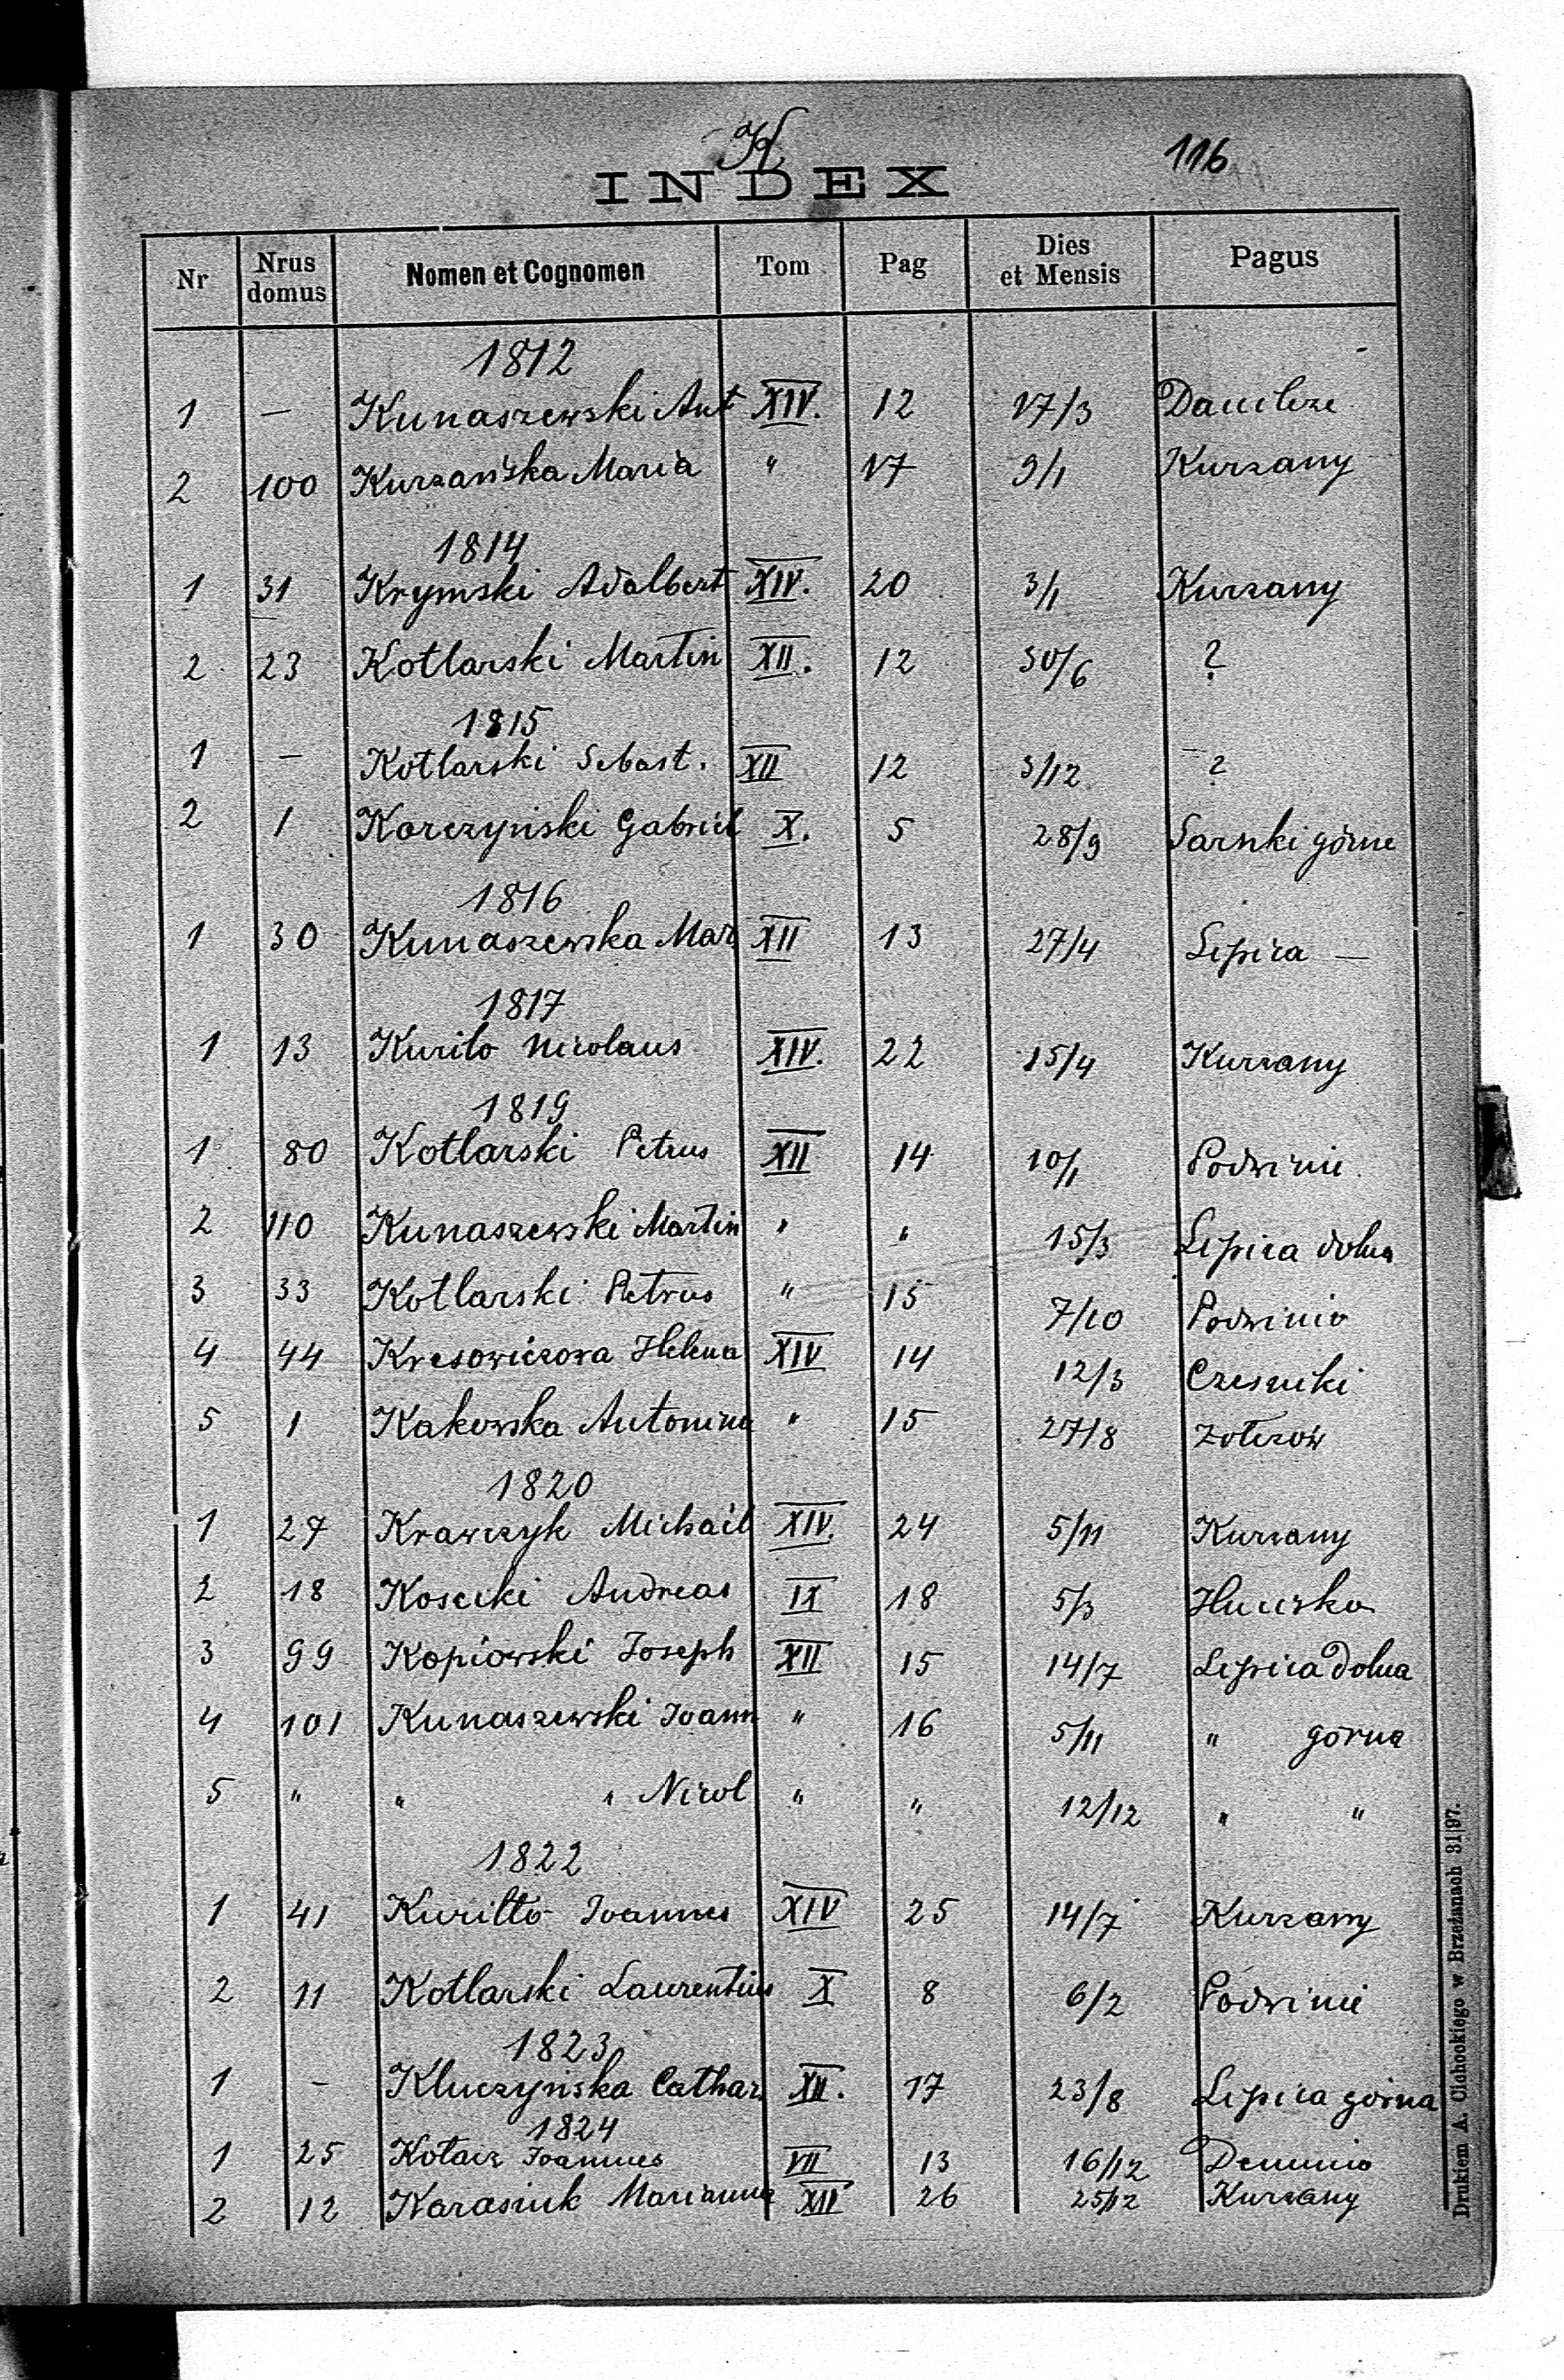 K
116
INDEX
Nr Nrus domus Nomen et Cognomen Tom Pag Dies et Mensis Pagus
1812
1 — Kunaszewski Ant XIV. 12 17/3 Danilcze
2 100 Kurzańska Maria " 17 9/1 Kurzany
1814
1 31 Krymski Adalbert XIV. 20 3/1 Kurzany
2 23 Kotlarski Martin XII. 12 30/6 ?
1815
1 — Kotlarski Sebast. XII 12 3/12 ?
2 1 Korczyński Gabriel X. 5 28/9 Sarnki górne
1816
1 30 Kunaszewska Mar XII 13 27/4 Lipica —
1817
1 13 Kurito Nicolaus XIV. 22 15/4 Kurzany
1819
1 80 Kotlarski Petrus XII 14 10/1 Podwinie
2 110 Kunaszewski Martin " " 15/3 Lipica dolna
3 33 Kotlarski Petrus " 15 7/10 Podwinie
4 44 Kresowiczowa Helena XIV 14 12/3 Czesniki
5 1 Kakowska Antonina " 15 27/8 Zołczow
1820
1 27 Krawczyk Michael XIV. 24 5/11 Kurzany
2 18 Kosecki Andreas IX 18 5/3 Hucisko
3 99 Kopiowski Joseph XII 15 14/7 Lipica dolna
4 101 Kunaszewski Joann " 16 5/11 " górna
5 " " " Nicol " " 12/12 " "
1822
1 41 Kuriłło Joannes XIV 25 14/7 Kurzany
2 11 Kotlarski Laurentius X 8 6/2 Podwinie
1823
1 – Kluczyńska Cathar. XII. 17 23/8 Lipica górna
1824
1 25 Kotarz Joannes VII 13 16/12 Demnia
2 12 Karasiuk Marianna XIV 26 25/12 Kurzany
Drukiem A. Cichockiego w Brzeżanach 31|97.